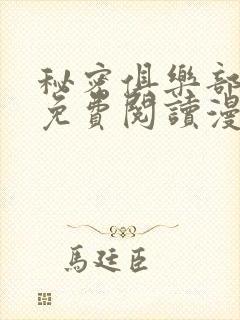 秘密俱樂部
免費閱讀漫
馬廷臣